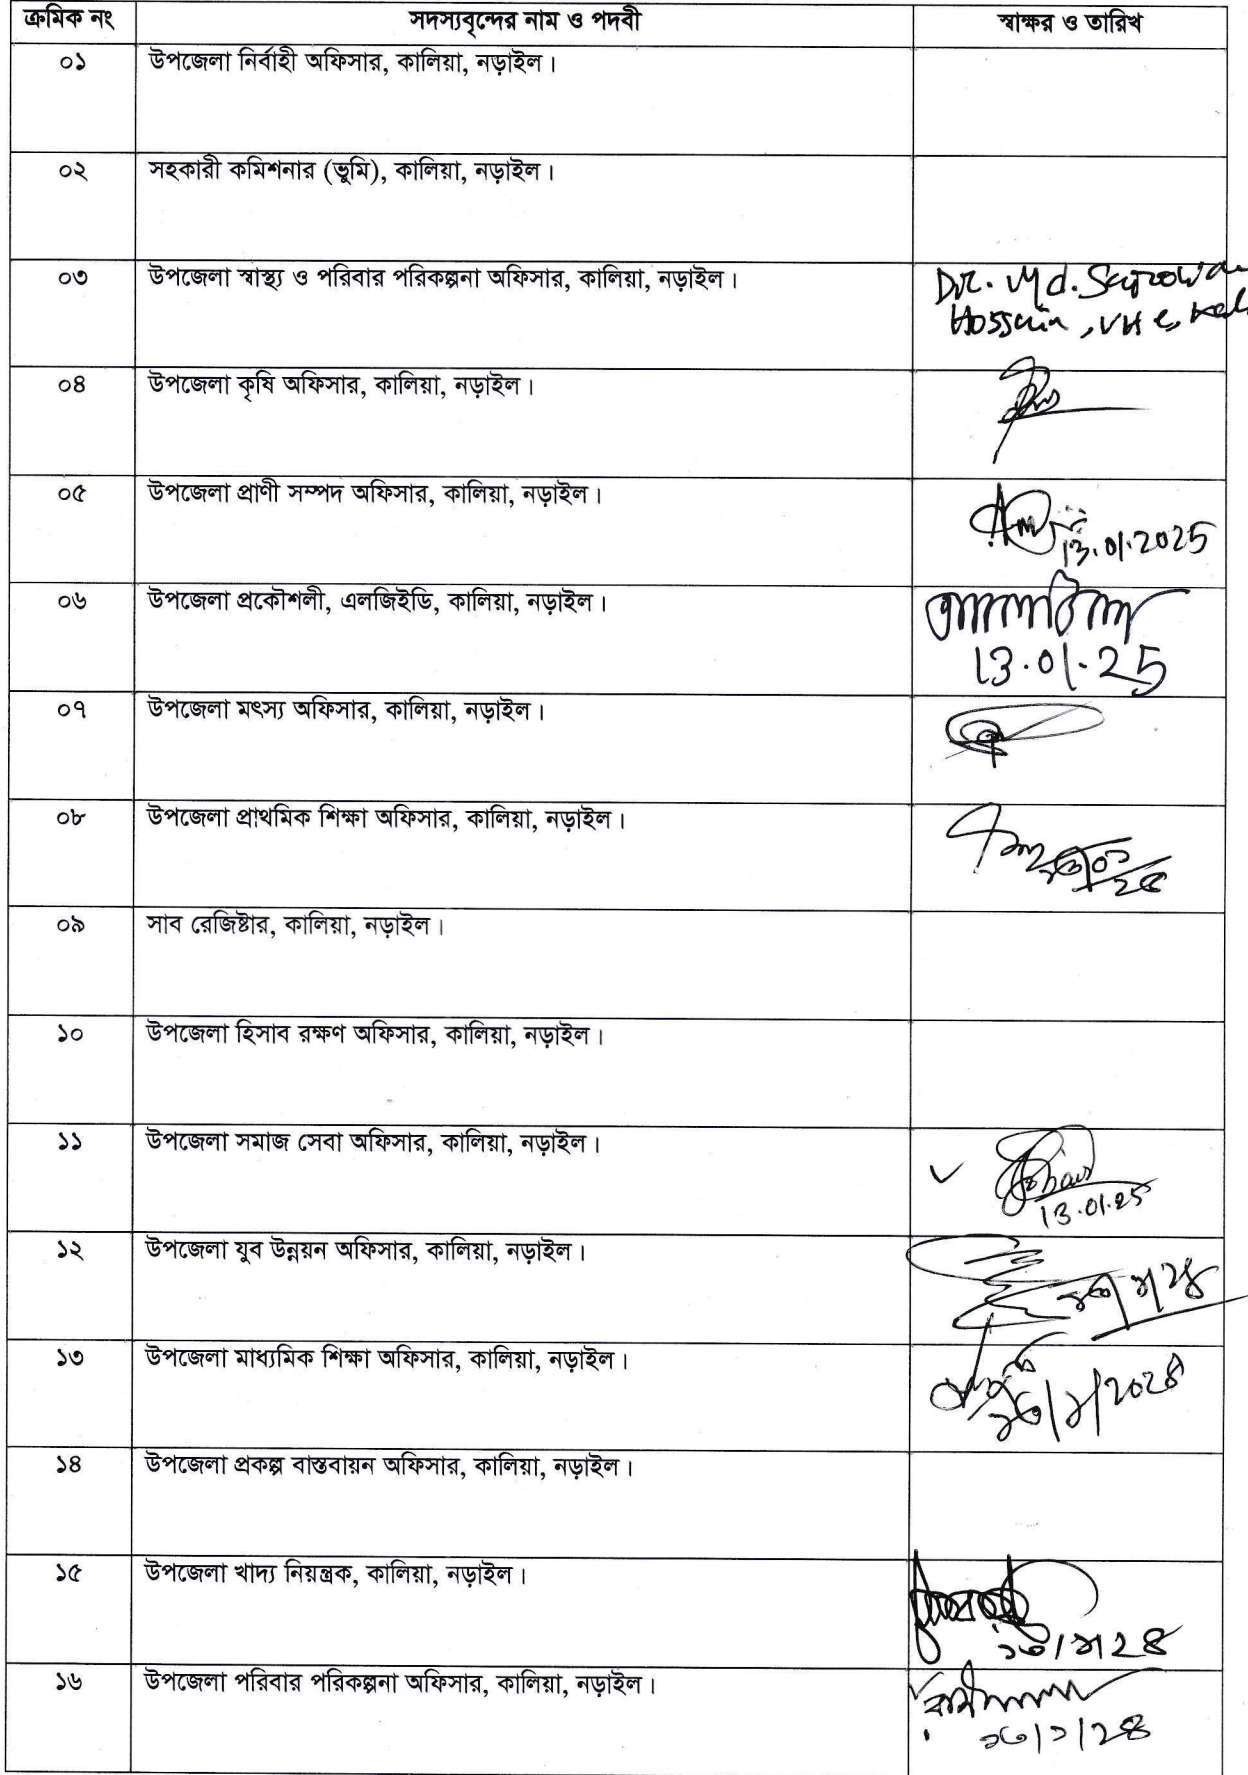 ক্রমিক নং সদস্যবৃন্দের নাম ও পদবী স্বাক্ষর ও তারিখ
০১ উপজেলা নির্বাহী অফিসার, কালিয়া, নড়াইল।
০২ সহকারী কমিশনার (ভুমি), কালিয়া, নড়াইল।
০৩ উপজেলা স্বাস্থ্য ও পরিবার পরিকল্পনা অফিসার, কালিয়া, নড়াইল। Dr. Md.
Hossain
০৪ উপজেলা কৃষি অফিসার, কালিয়া, নড়াইল।
০৫ উপজেলা প্রাণী সম্পদ অফিসার, কালিয়া, নড়াইল।
13.01.2025
০৬ উপজেলা প্রকৌশলী, এলজিইডি, কালিয়া, নড়াইল।
13.01.25
০৭ উপজেলা মৎস্য অফিসার, কালিয়া, নড়াইল।
০৮ উপজেলা প্রাথমিক শিক্ষা অফিসার, কালিয়া, নড়াইল।
০৯ সাব রেজিষ্টার, কালিয়া, নড়াইল।
১০ উপজেলা হিসাব রক্ষণ অফিসার, কালিয়া, নড়াইল।
১১ উপজেলা সমাজ সেবা অফিসার, কালিয়া, নড়াইল।
13.01.25
১২ উপজেলা যুব উন্নয়ন অফিসার, কালিয়া, নড়াইল।
১৩ উপজেলা মাধ্যমিক শিক্ষা অফিসার, কালিয়া, নড়াইল।
১৪ উপজেলা প্রকল্প বাস্তবায়ন অফিসার, কালিয়া, নড়াইল।
১৫ উপজেলা খাদ্য নিয়ন্ত্রক, কালিয়া, নড়াইল।
১৬ উপজেলা পরিবার পরিকল্পনা অফিসার, কালিয়া, নড়াইল।